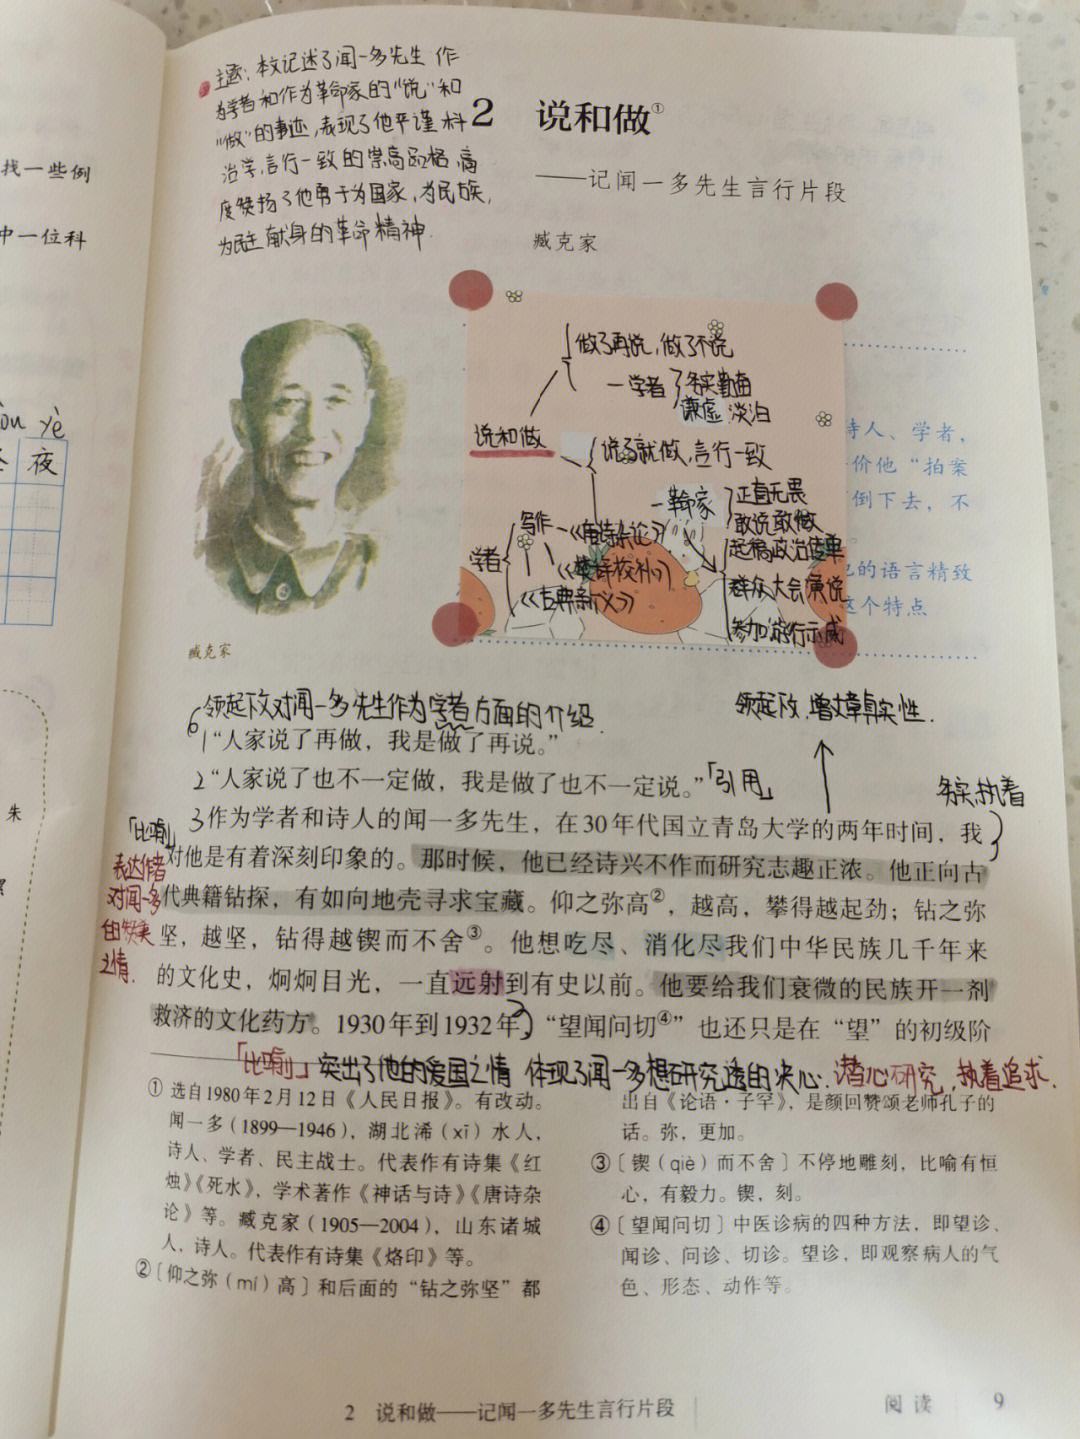 找一些例
中一位科
yè
夜
朱
主题:本文记述了闻一多先生作
为学者和作为革命家的“说”和
“做”的事迹,表现了他严谨
治学,言行一致的崇高品格,高
度赞扬了他勇于为国家,为民族,
为民主献身的革命精神.
2 说和做①
——记闻一多先生言行片段
臧克家
做了再说,做了不说
—学者 务实勤恳
谦虚 淡泊
说和做
说了就做,言行一致
—革命家 正直无畏
敢说敢做
学者 写作—《唐诗杂论》
《楚辞校补》
《古典新义》
起稿政治传单
群众大会演说
参加游行示威
诗人、学者,
价他“拍案
倒下去,不
的语言精致
这个特点
臧克家
领起下文对闻一多先生作为学者方面的介绍.
领起下文,增文章真实性.
1“人家说了再做,我是做了再说。”
2“人家说了也不一定做,我是做了也不一定说。”「引用」
务实,执着
3作为学者和诗人的闻一多先生,在30年代国立青岛大学的两年时间,我
对他是有着深刻印象的。那时候,他已经诗兴不作而研究志趣正浓。他正向古
代典籍钻探,有如向地壳寻求宝藏。仰之弥高②,越高,攀得越起劲;钻之弥
坚,越坚,钻得越锲而不舍③。他想吃尽、消化尽我们中华民族几千年来
的文化史,炯炯目光,一直远射到有史以前。他要给我们衰微的民族开一剂
救济的文化药方。1930年到1932年,“望闻问切④”也还只是在“望”的初级阶
「比喻」
表达作者
对闻一多
的赞美
之情.
「比喻」突出了他的爱国之情 体现了闻一多想研究透的决心.潜心研究,执着追求.
① 选自1980年2月12日《人民日报》。有改动。
闻一多(1899—1946),湖北浠(xī)水人,
诗人、学者、民主战士。代表作有诗集《红
烛》《死水》,学术著作《神话与诗》《唐诗杂
论》等。臧克家(1905—2004),山东诸城
人,诗人。代表作有诗集《烙印》等。
②〔仰之弥(mí)高〕和后面的“钻之弥坚”都
出自《论语·子罕》,是颜回赞颂老师孔子的
话。弥,更加。
③〔锲(qiè)而不舍〕不停地雕刻,比喻有恒
心,有毅力。锲,刻。
④〔望闻问切〕中医诊病的四种方法,即望诊、
闻诊、问诊、切诊。望诊,即观察病人的气
色、形态、动作等。
2 说和做——记闻一多先生言行片段
阅读 9